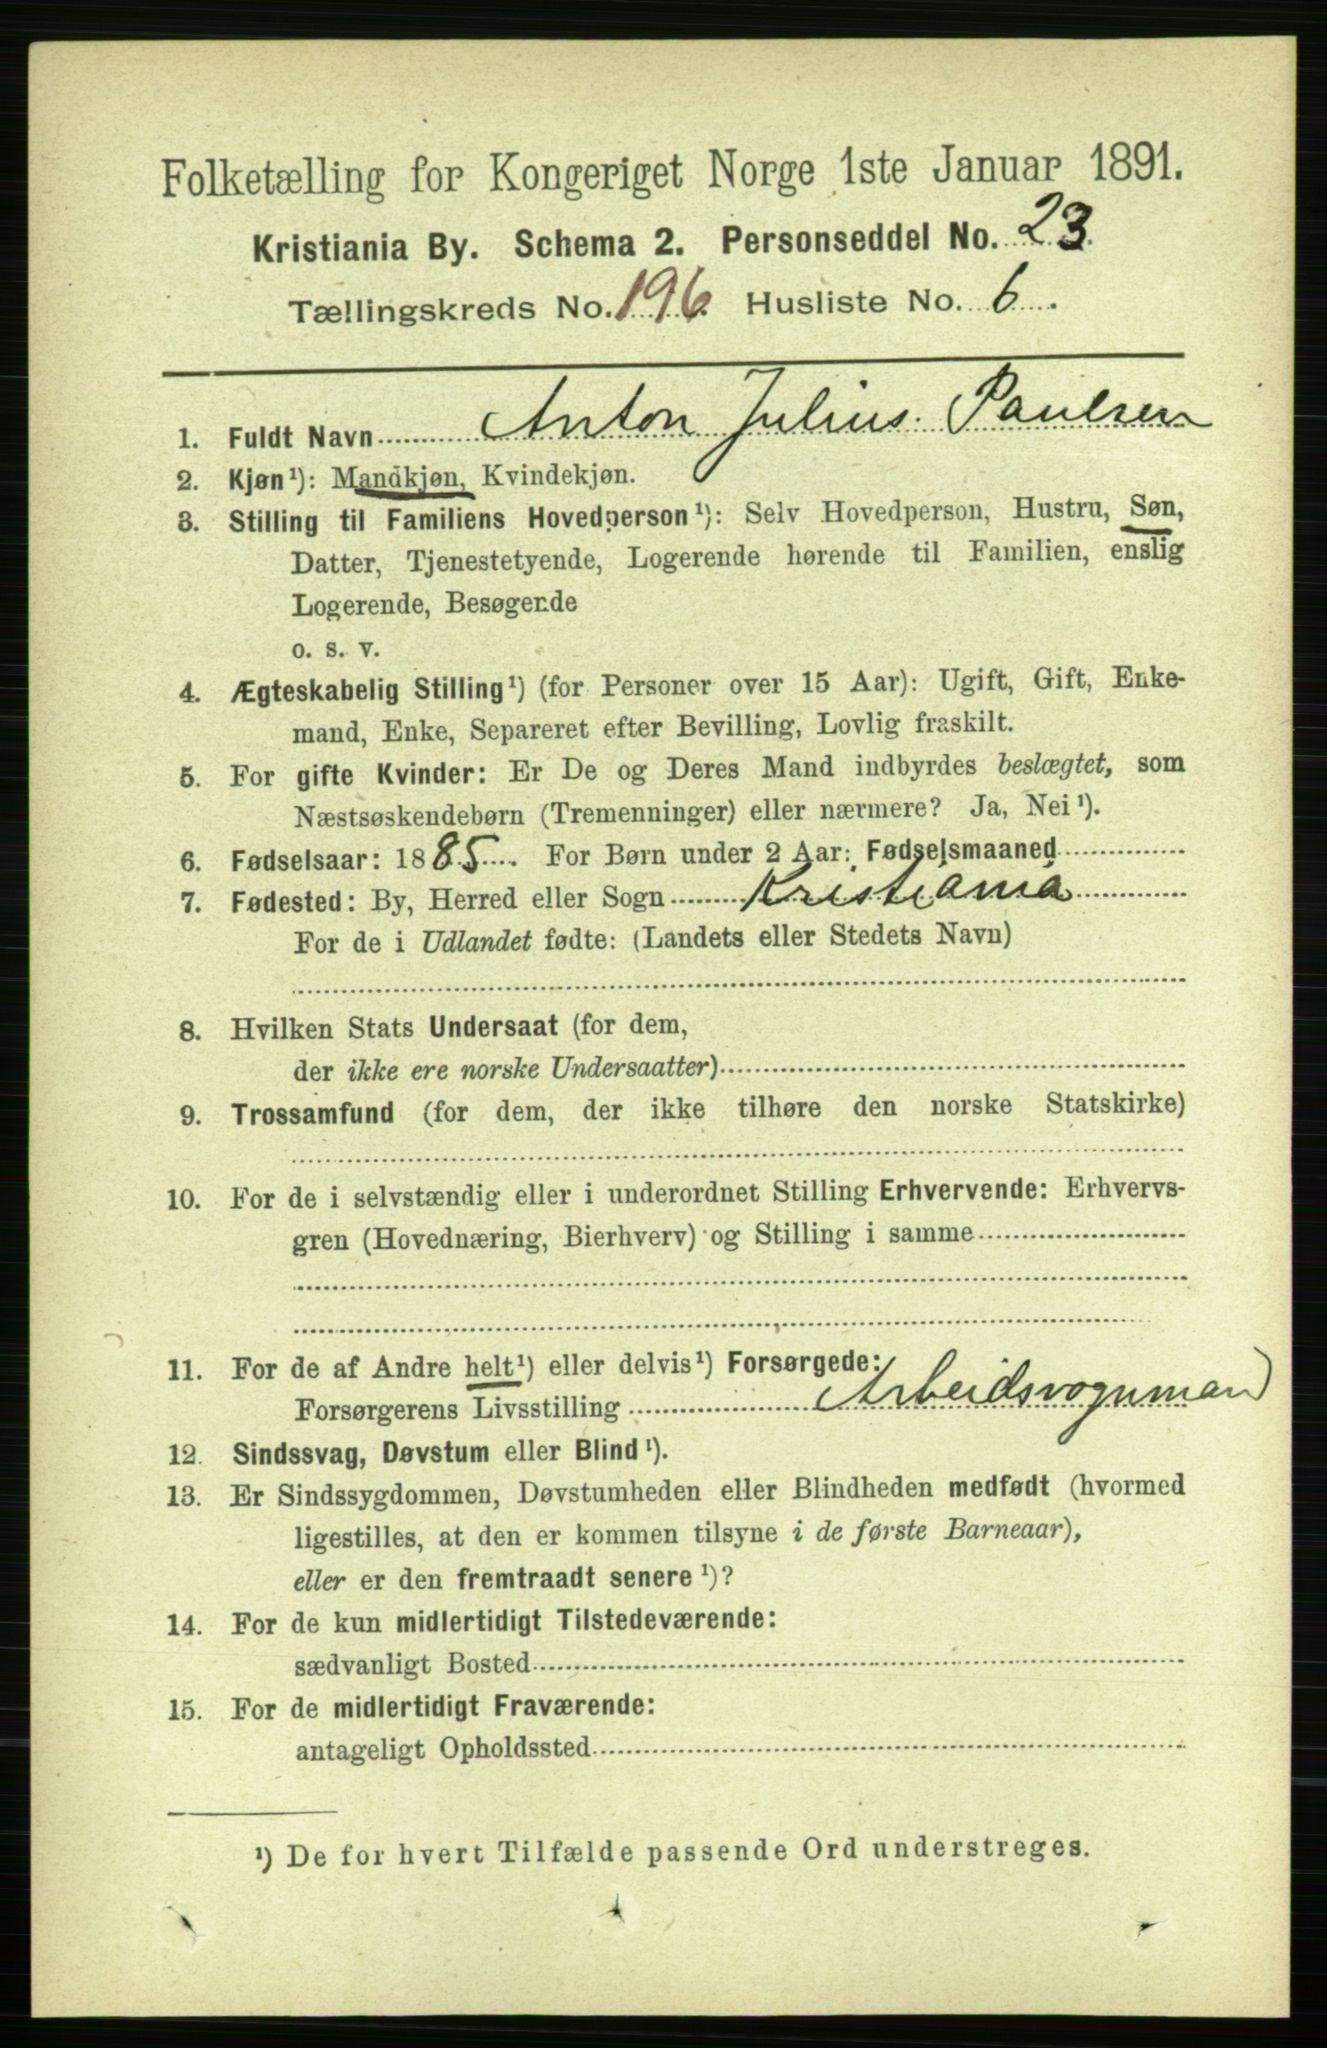 Folketælling for Kongeriget Norge 1ste Januar 1891.
Kristiania By. Schema 2. Personseddel No. 23.
Tællingskreds No. 196. Husliste No. 6.
1. Fuldt Navn Anton Julius Paulsen
2. Kjøn¹): Mandkjøn, Kvindekjøn.
3. Stilling til Familiens Hovedperson¹): Selv Hovedperson, Hustru, Søn,
Datter, Tjenestetyende, Logerende hørende til Familien, enslig
Logerende, Besøgende
o. s. v.
4. Ægteskabelig Stilling¹) (for Personer over 15 Aar): Ugift, Gift, Enke-
mand, Enke, Separeret efter Bevilling, Lovlig fraskilt.
5. For gifte Kvinder: Er De og Deres Mand indbyrdes beslægtet, som
Næstsøskendebørn (Tremenninger) eller nærmere? Ja, Nei¹).
6. Fødselsaar: 1885. For Børn under 2 Aar: Fødselsmaaned
7. Fødested: By, Herred eller Sogn Kristiania
For de i Udlandet fødte: (Landets eller Stedets Navn)
8. Hvilken Stats Undersaat (for dem,
der ikke ere norske Undersaatter)
9. Trossamfund (for dem, der ikke tilhøre den norske Statskirke)
10. For de i selvstændig eller i underordnet Stilling Erhvervende: Erhvervs-
gren (Hovednæring, Bierhverv) og Stilling i samme
11. For de af Andre helt¹) eller delvis¹) Forsørgede:
Forsørgerens Livsstilling Arbeidsvognmand
12. Sindssvag, Døvstum eller Blind¹).
13. Er Sindssygdommen, Døvstumheden eller Blindheden medfødt (hvormed
ligestilles, at den er kommen tilsyne i de første Barneaar),
eller er den fremtraadt senere¹)?
14. For de kun midlertidigt Tilstedeværende:
sædvanligt Bosted
15. For de midlertidigt Fraværende:
antageligt Opholdssted
¹) De for hvert Tilfælde passende Ord understreges.